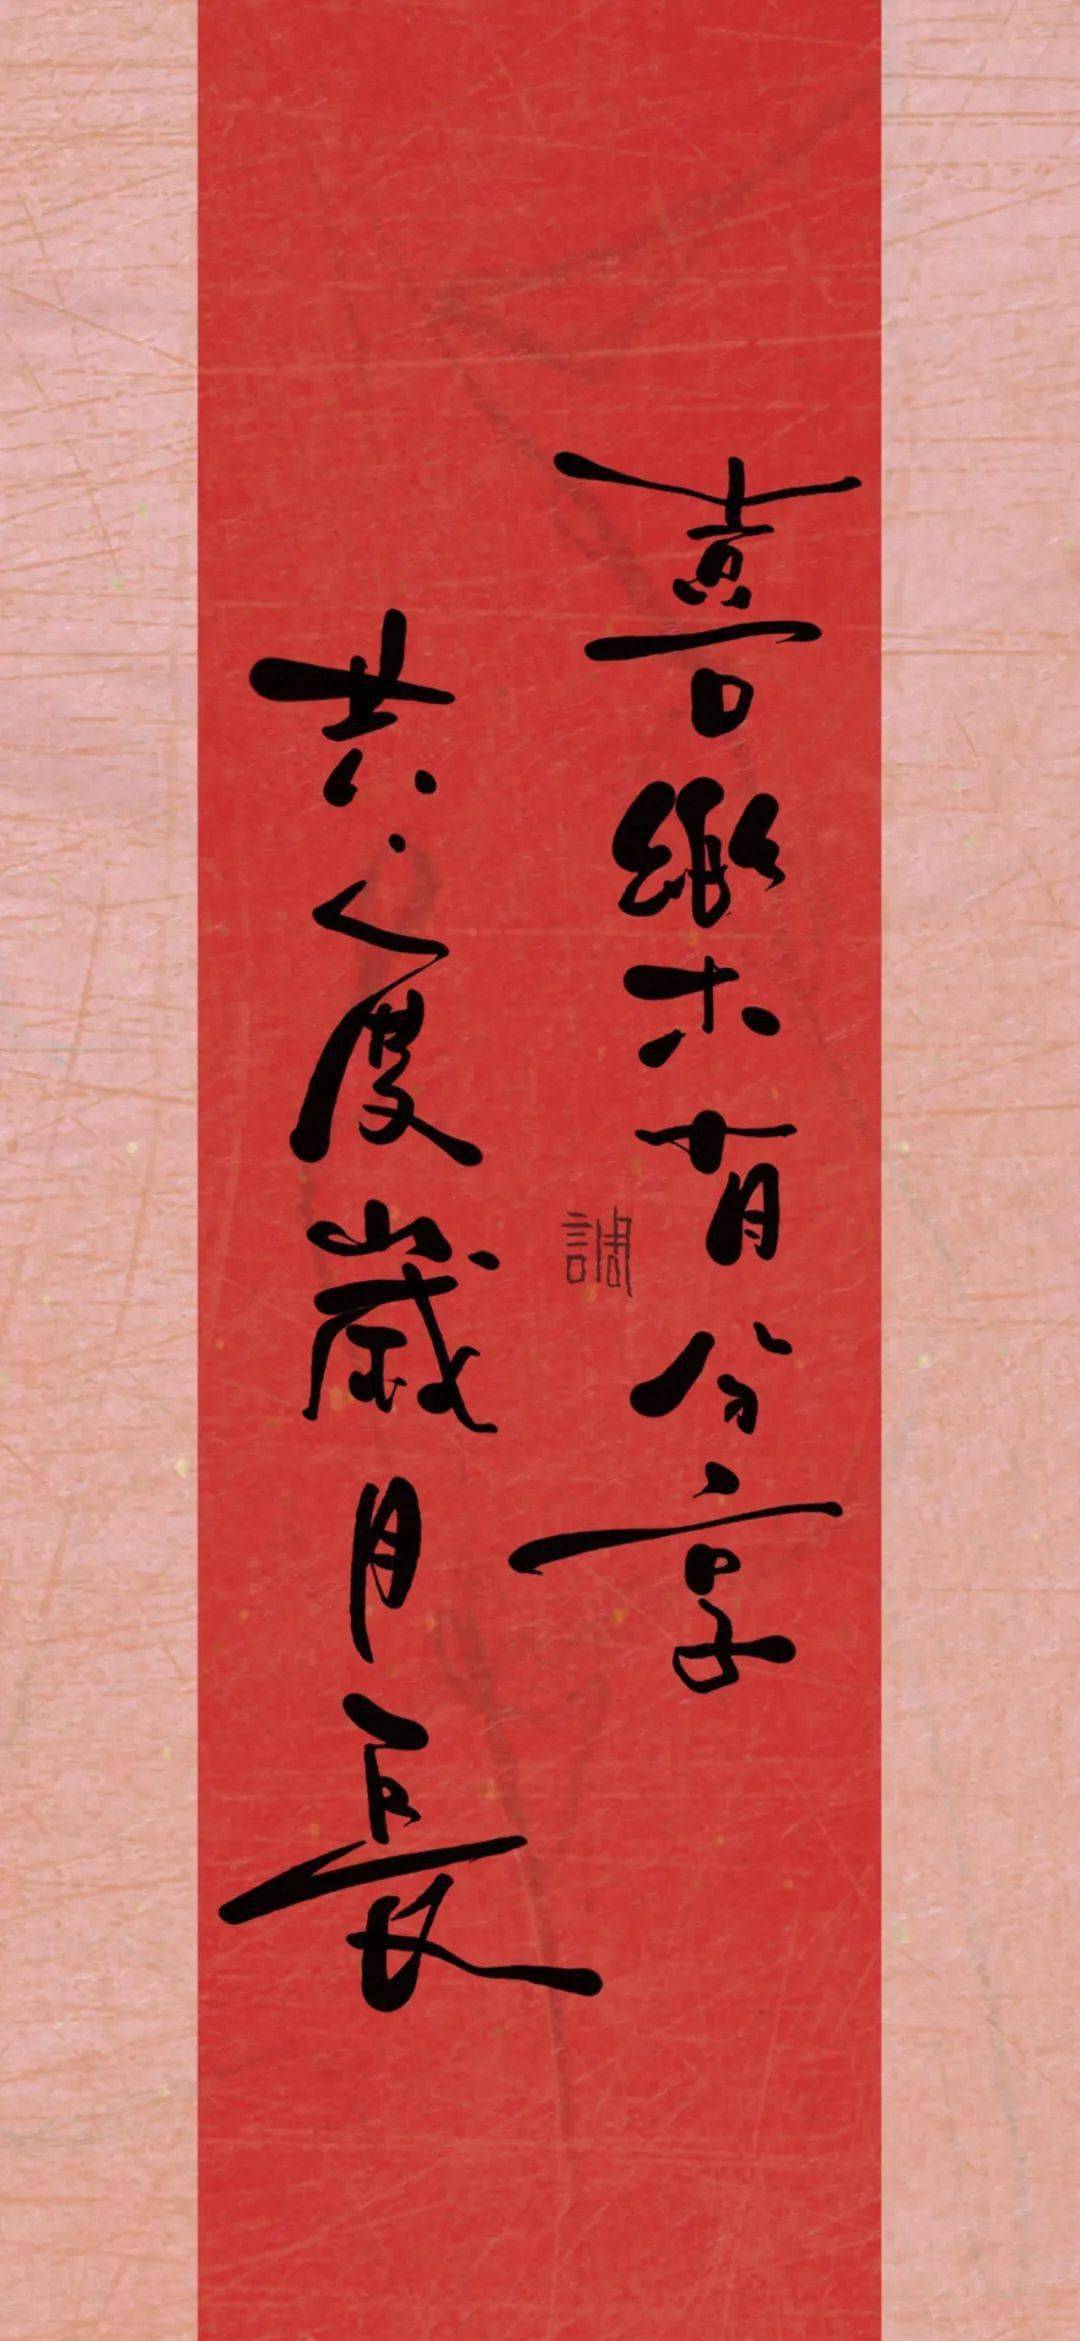 喜樂有分享
共度歲月長
調